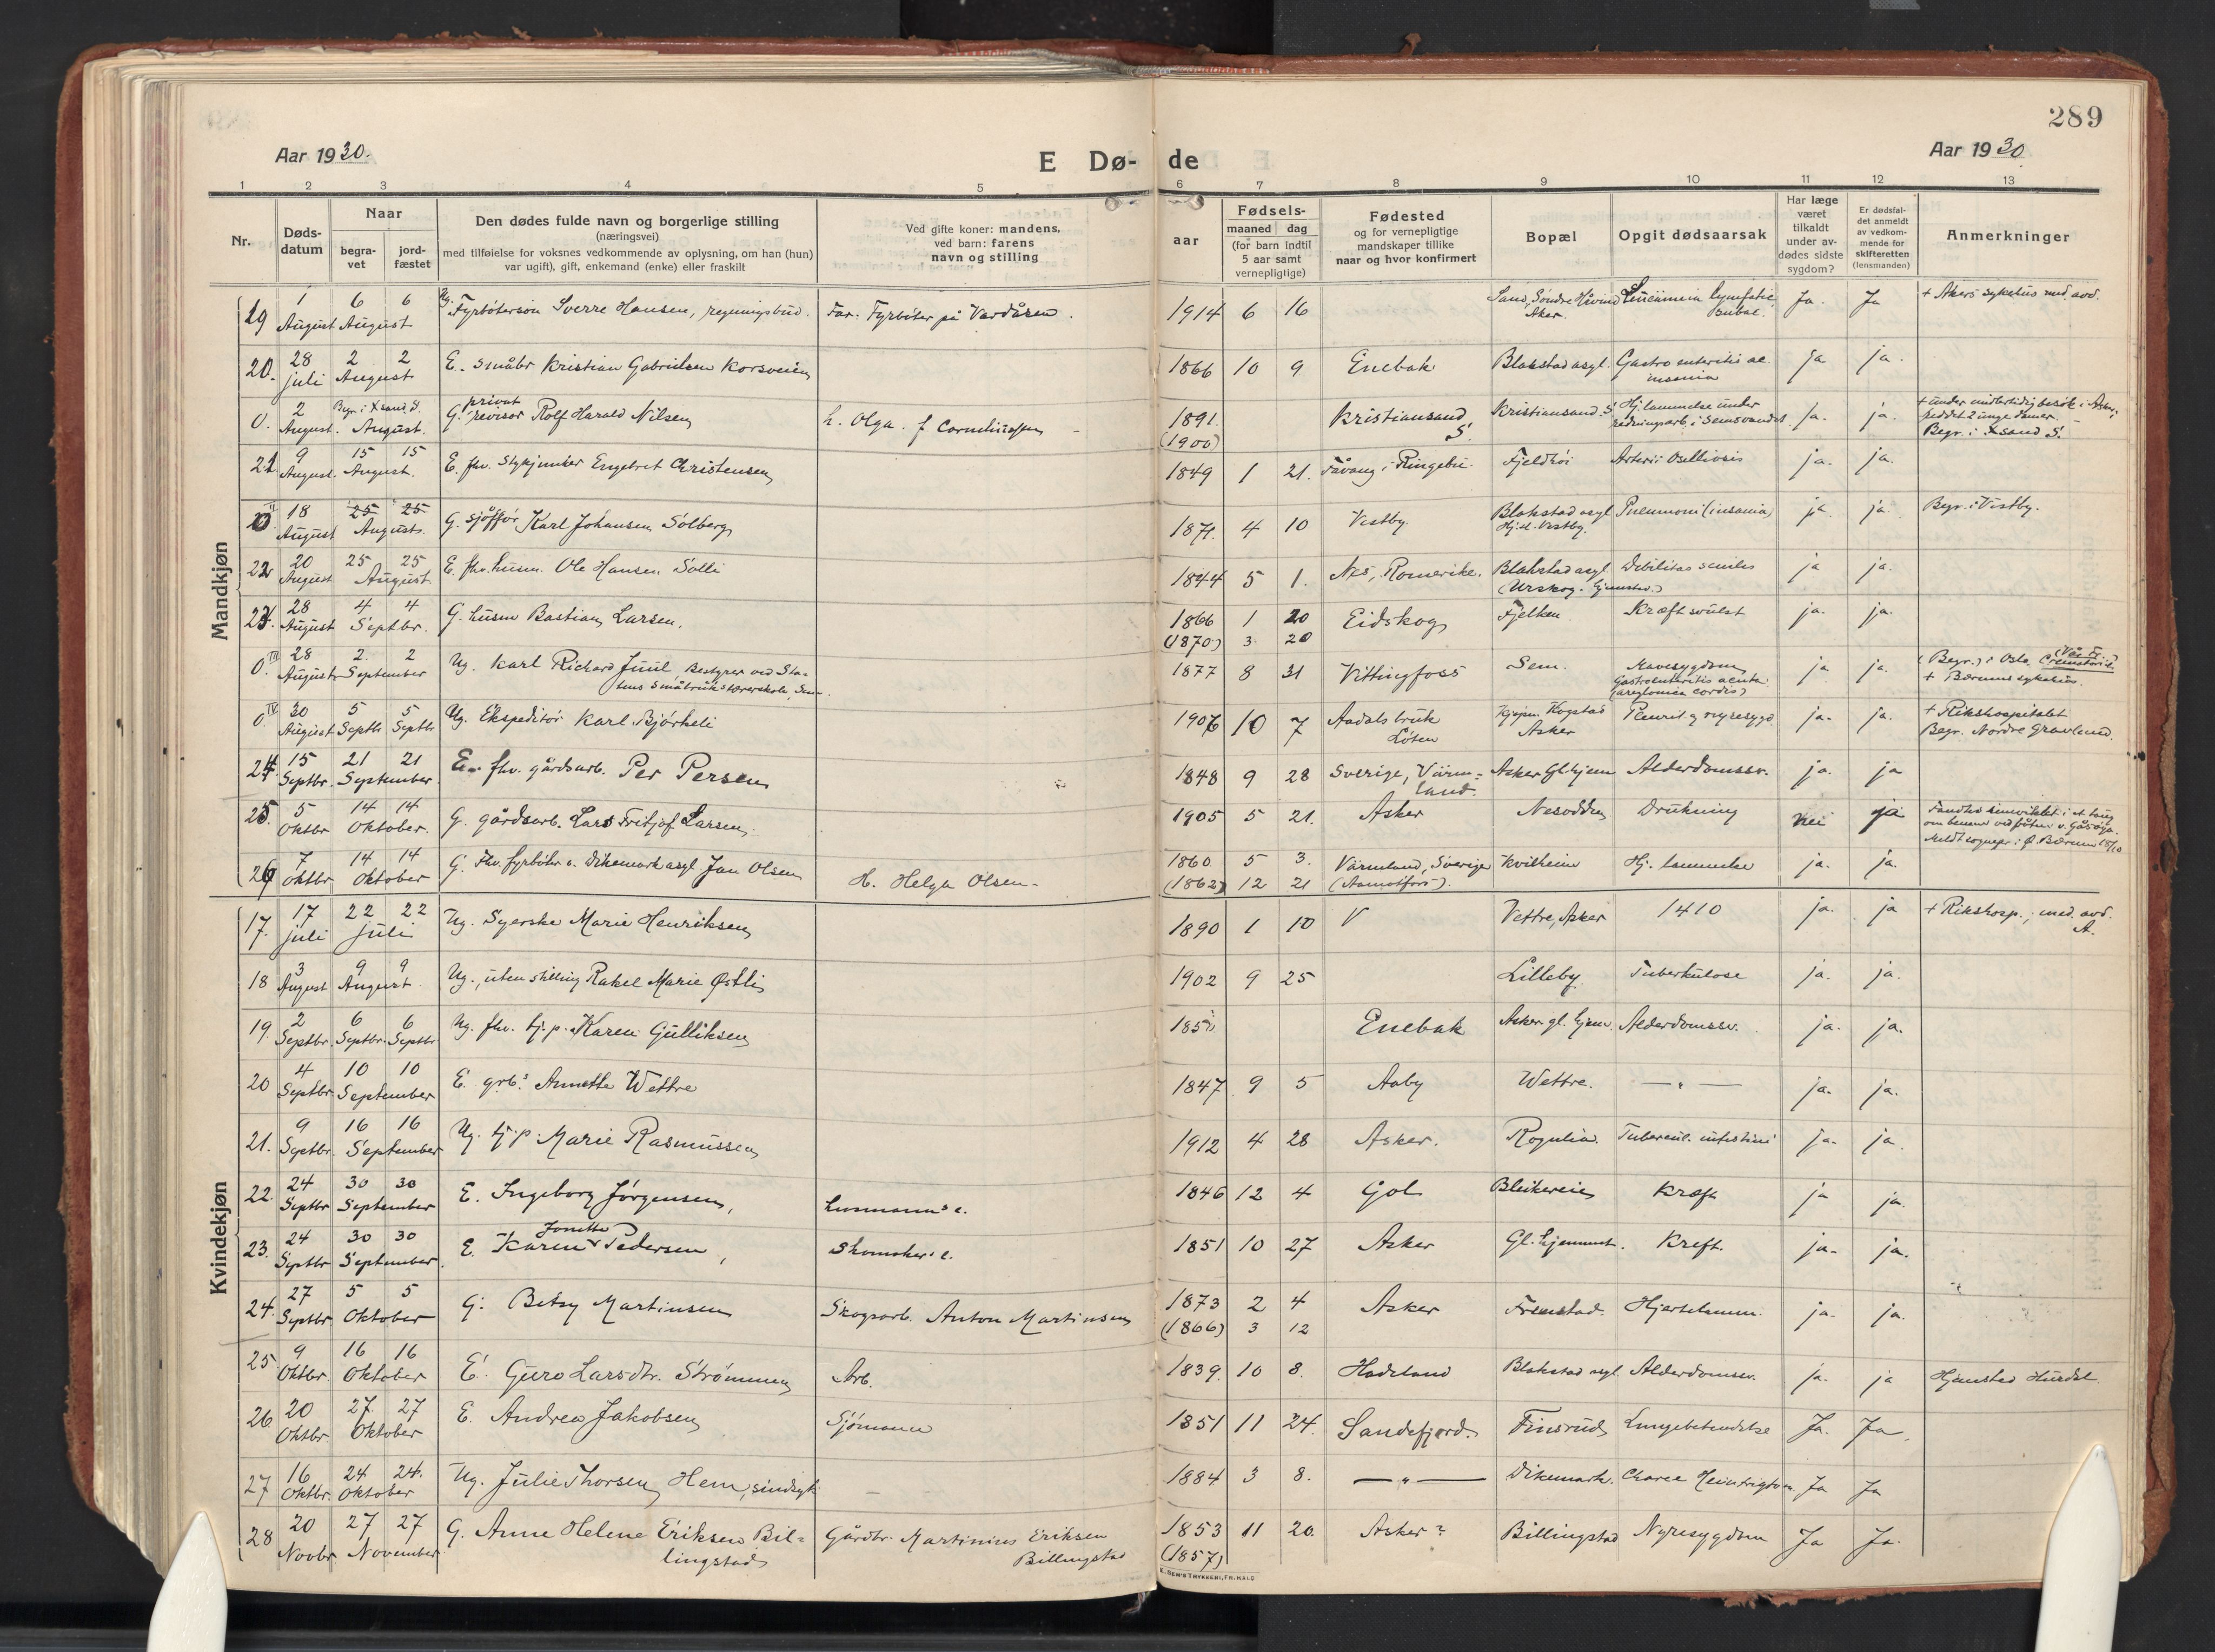 289
Aar 1930.
E Dø- de
Aar 1930
1 2 3 4 5 6 7 8 9 10 11 12 13
Nr.
Døds-
datum
Naar
begra-
vet
jord-
fæstet
Den dødes fulde navn og borgerlige stilling
(næringsvei)
med tilføielse for voksnes vedkommende av oplysning, om han (hun)
var ugift), gift, enkemand (enke) eller fraskilt
Ved gifte koner: mandens,
ved barn: farens
navn og stilling
aar
Fødsels-
maaned dag
(for barn indtil
5 aar samt
vernepligtige)
Fødested
og for vernepligtige
mandskaper tillike
naar og hvor konfirmert
Bopæl
Opgit dødsaarsak
Har læge
været
tilkaldt
under av-
dødes sidste
sygdom?
Er dødsfal-
det anmeldt
av vedkom-
mende for
skifteretten
(lensmanden)
Anmerkninger
Mandkjøn
19 1 August 6 6 August Ug. Fyrbøtersøn Sverre Hansen, regningsbud. Far: Fyrbøter på Vardåsen. 1914 6 16 Sand, Søndre Håvind Aker. lymfatic Ja. Ja + Akers sykehus med. avd.
20. 28 juli 2 2 August E. småbr Kristian Gabrielsen Korsveien 1866 10 9 Enebak Blakstad asyl. Gastro enteritis ac. insania ja ja.
0. 2 August. Begr. i Xsand S. August. G. privat revisor Rolf Harald Nilsen h. Olga f. Corneliussen 1891. (1900) Kristiansand S. Kristiansand S. Hj. lammelse under redningsarb. i Semsvandet ja. ja. + under midlertidig besøk i Asker, reddet 2 unge damer. Begr. i Xsand S.
21 9 August. 15 15 August. E. fhv. Engebret Christensen 1849 1 21. Fåvang i Ringebu. Fjeldhøi ja. ja.
0 II 18 August 25 25 August. G. sjøffør Karl Johansen Solberg 1871. 4 10 Vestby. Blakstad asyl Hj.st. Vestby. Pneumoni (insania) ja ja. Begr. i Vestby.
22 20 August 25 25 August E. fhv. husm. Ole Hansen Solli 1844 5 1. Nes, Romerike. Blakstad asyl. (Urskog. hjemsted.) Debilitas senilis ja ja.
23. 28 August 4 4 Septbr. G. husm Bastian Larsen. 1866 (1870) 1 20 3 20 Eidskog Fjelken Kræftsvulst ja. ja.
0. III 28 August 2. 2 September Ug. Karl Richard Juul Bestyrer ved Sta-
tens småbrukslærerskole, Sem. 1877 8 31 Vittingfoss Sem. Mavesygdom Gastroenteritis acuta ja ja. (Begr.) i Oslo + Bærums sykehus.
0. IV 30 August 5 Septb 5 Septb Ug. Ekspeditør Karl Bjørkeli 1906 10 7 Aadals bruk Løten Kogstad Asker Pleurit. og nyresygd. ja. ja. + Rikshospitalet Begr. Nordre Gravlund.
24. 15 Septbr. 21 21 September E. fhv. gårdsarb. Per Persen 1848 9 28 Sverige, Värm-
land. Asker Gl.hjem Alderdomssv. ja. ja
25. 5 Oktbr 14 14 Oktober. G. gårdsarb. Lars Fritjof Larsen. 1905 5 21. Asker Nesodden Drukning nei ja Fandtes i et taug om benene ved båten v. Gåsøya. Meldt sogneprest i Ø. Bærum 15/10
26 7 Oktbr 14 14 Oktober G. Fhv. fyrbøter v. Dikemark asyl Jan Olsen H. Helga Olsen. 1860 (1862) 5 3. 12 21 Värmland, Sverige (Aamotfors). Kvilheim Hj. lammelse ja. ja.
Kvindekjøn
17. 17 juli 22 22 juli Ug. Syerske Marie Henriksen 1890 1 10 V Vettre, Asker 1410 ja. ja + Rikshosp., med. avd. A.
18 3 August 9 9 August Ug., uten stilling Rakel Marie Østli 1902 9 25 Lilleby Tuberkulose ja. ja.
19. 2 Septbr. 6 Septbr. 6 Septbr Ug. fhv. tj. p. Karen Gulliksen Enebak Asker gl. hjem. Alderdomssv. ja. ja.
20 4 Septbr. 10 10 September E. grbs Annette Wettre 1847 9 5 Aaby Wettre. — " — ja. ja.
21. 9 Septbr. 16 16 September Ug. tj. p. Marie Rasmussen 1912 4 28 Asker. Rognlia. Tubercul. intestini ja. ja.
22. 24 Septbr 30 30 September E. Ingeborg Jørgensen, Husmanns e. 1846 12 4 Gol Bleikereie Kræft ja ja.
23. 24 Septbr 30 30 September. E. Karen Jonette Pedersen, Skomaker e. 1851 10 27 Asker Gl. hjemmet. Kreft. ja. ja.
24. 27 Septbr 5 5 Oktober G. Betsy Martinsen Skogsarb. Anton Martinsen 1873 (1866) 2 4 3 12 Asker Fremstad. Hjertelamm. ja. ja.
25. 9 Oktbr. 16 16 Oktober E. Guro Larsdtr. Strømmen Arb. 1839. 10 8. Hadeland Blakstad asyl. Alderdomssv. ja. ja Hjemsted Hurdal
26 20 Oktbr. 27. 27 Oktober E. Andrea Jakobsen Sjømann 1851 11 24. Sandefjord. Finsrud Lungebetendelse Ja. Ja.
27 16 Oktbr. 24 24. Oktober Ug. Julie Thorsen Hem, sindsyk — 1884 3 8. — " — Dikemark. Ja Ja
28 20 Novbr 27 27 November G. Anne Helene Eriksen Bil-
lingstad Gårdbr. Martinius Eriksen Billingstad 1853 (1857) 11 20. Asker? Billingstad Nyresygdom Ja Ja.
E. SEM'S TRYKKERI, FR.HALD